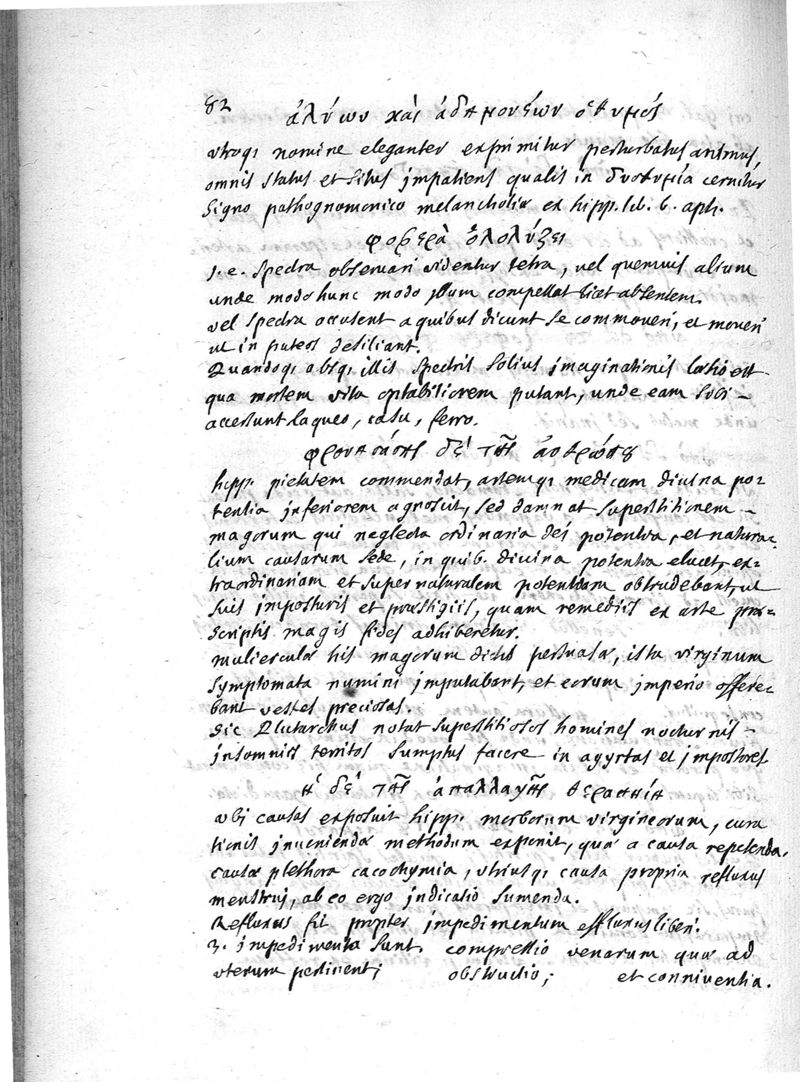 82
ἀλύων καὶ ἀδημονέων ὁ θυμός
utroq; nomine eleganter exprimitur perturbatus animus,
omnis status et situs impatiens qualis in δυσθυμία cernitur
signo pathognomonico melancholiæ ex hipp. lib. 6. aph.
φοβερὰ ὀλολύζει
i.e. spectra observari videntur tetra, vel quemvis alium
unde modo hunc modo illum compellat licet absentem.
vel spectra accusent a quibus dicunt se commoveri, et moveri
ut in puteos desiliant.
Quandoq; absq; illis spectris solius imaginationis læsio est
qua mortem vita optabiliorem putant, unde eam sibi -
accersunt laqueo, casu, ferro.
φρονησάσης δὲ τῆς ἀνθρώπου
hipp. pietatem commendat, artemq; medicam divina po-
tentia inferiorem agnoscit, sed damnat superstitionem -
magorum qui neglecta ordinaria dei potentia, et natura-
lium causarum sede, in quib. divina potentia elucet, ex-
traordinariam et supernaturalem potentiam obtrudebant, ut
suis imposturis et præstigiis, quam remediis ex arte præ-
scriptis magis fides adhiberetur.
mulierculæ his magorum dictis persuasæ, ista virginum
symptomata numini imputabant, et eorum imperio offere-
bant vestes preciosas.
sic Plutarchus notat superstitiosos homines nocturnis -
insomniis territos sumptus facere in agyrtas et impostores
ἡ δὲ τῆς ἀπαλλαγῆς θεραπηίη
ubi causas exposuit hipp. morborum virgineorum, cura
tionis inveniendæ methodum exponit, quæ a causa repetenda.
causæ plethora cacochymia, utriusq; causa propria refluxus
menstrui, ab eo ergo indicatio sumenda.
Refluxus fit propter impedimentum effluxus liberi.
3. impedimenta sunt. compressio venarum quæ ad
uterum pertinent; obstructio; et conniventia.